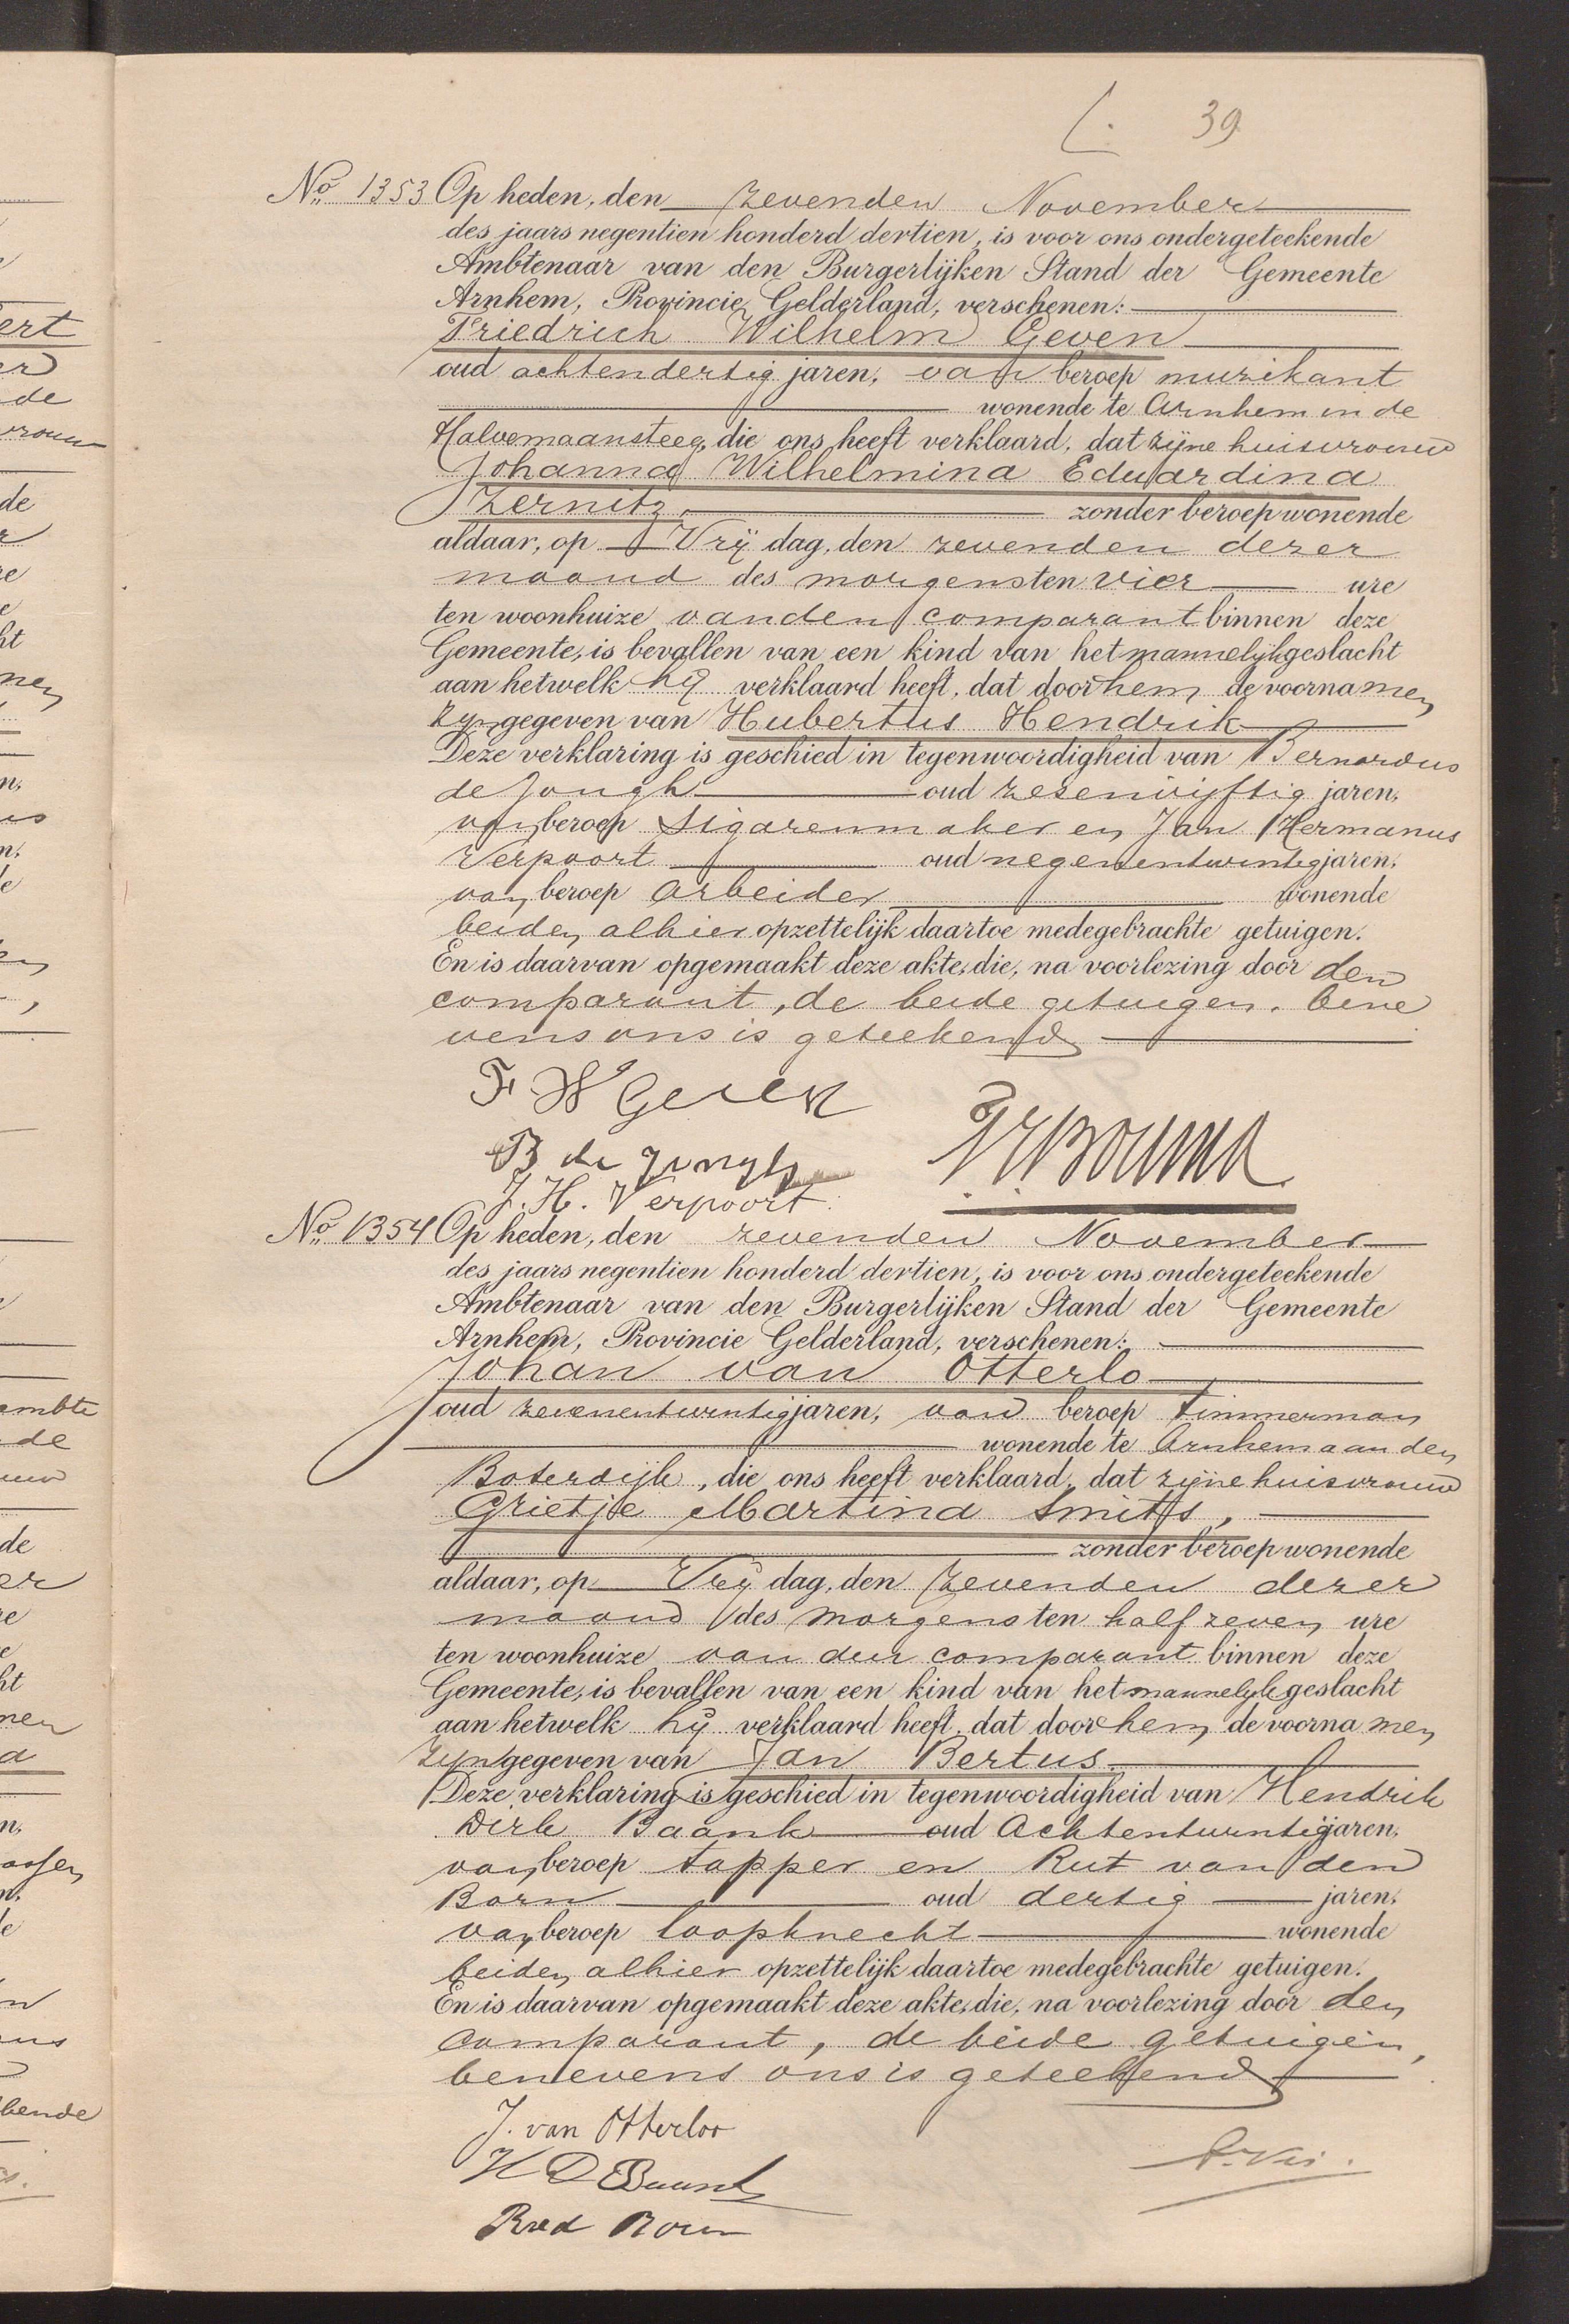 39
No 1353 Op heden, den zevenden November
des jaars negentien honderd dertien, is voor ons ondergeteekende
Ambtenaar van den Burgerlijken Stand der Gemeente
Arnhem, Provincie Gelderland, verschenen:
Friedrich Wilhelm Geven
oud achtendertig jaren, van beroep muzikant
wonende te Arnhem in de
Halvemaansteeg, die ons heeft verklaard, dat zijne huisvrouw
Johanna Wilhelmina Eduardina
Zernitz, zonder beroep wonende
aldaar, op Vrij dag, den zevenden dezer
maand des morgens ten vier ure
ten woonhuize van den comparant binnen deze
Gemeente, is bevallen van een kind van het mannelijk geslacht
aan hetwelk hij verklaard heeft, dat door hem de voornamen
zijn gegeven van Hubertus Hendrik
Deze verklaring is geschied in tegenwoordigheid van Bernardus
de Jongh oud zesenvijftig jaren,
van beroep sigarenmaker en Jan Hermanus
Verpoort oud negenentwintig jaren,
van beroep arbeider wonende
beiden alhier opzettelijk daartoe medegebrachte getuigen.
En is daarvan opgemaakt deze akte, die, na voorlezing door den
comparant, de beide getuigen, bene
vens ons is geteekend
F W Geven
B de Jongh
J. H. Verpoort
No 1354 Op heden, den zevenden November
des jaars negentien honderd dertien, is voor ons ondergeteekende
Ambtenaar van den Burgerlijken Stand der Gemeente
Arnhem, Provincie Gelderland, verschenen:
Johan van Otterlo
oud zevenentwintig jaren, van beroep timmerman
wonende te Arnhem aan den
Boterdijk, die ons heeft verklaard, dat zijne huisvrouw
Grietje Martina Smits,
zonder beroep wonende
aldaar, op Vrij dag, den zevenden dezer
maand des morgens ten half zeven ure
ten woonhuize van den comparant binnen deze
Gemeente, is bevallen van een kind van het mannelijk geslacht
aan hetwelk hij verklaard heeft, dat door hem de voornamen
zijn gegeven van Jan Bertus
Deze verklaring is geschied in tegenwoordigheid van Hendrik
Dirk Baank oud Achtentwintig jaren,
van beroep tapper en Rut van den
Born oud dertig jaren,
van beroep loopknecht wonende
beiden alhier opzettelijk daartoe medegebrachte getuigen.
En is daarvan opgemaakt deze akte, die, na voorlezing door den
comparant, de beide getuigen,
benevens ons is geteekend
J. van Otterloo
H D Baank
R v d Born